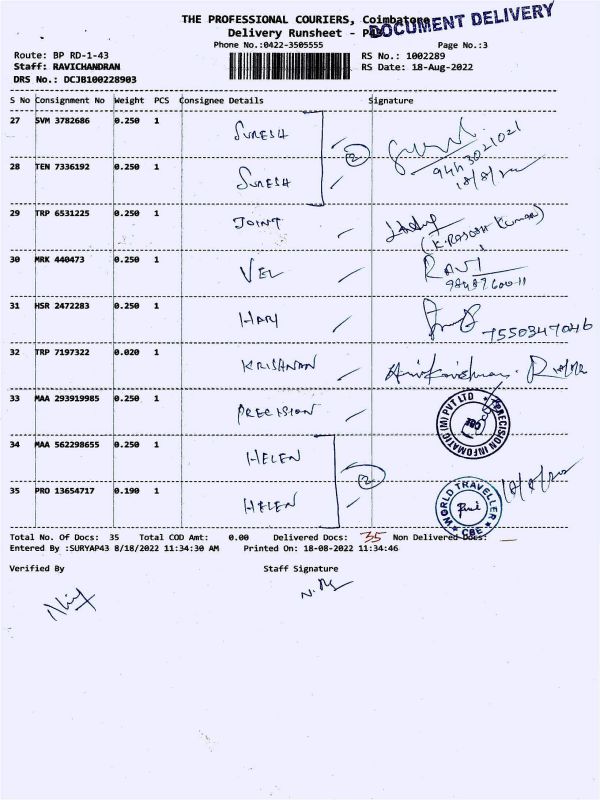 THE PROFESSIONAL COURIERS, Coimbatore
DOCUMENT DELIVERY
Delivery Runsheet -
Phone No.:0422-3505555 Page No.:3
Route: BP RD-1-43 RS No.: 1002289
Staff: RAVICHANDRAN RS Date: 18-Aug-2022
DRS No.: DCJB100228903
S No Consignment No Weight PCS Consignee Details Signature
27 SVM 3782686 0.250 1 SURESH
2 9443021021
28 TEN 7336192 0.250 1 SURESH 18/8/22
29 TRP 6531225 0.250 1 JOINT
(K. RAJESH Kumar)
30 MRK 440473 0.250 1 VEL RAVI
31 HSR 2472283 0.250 1 HARI 7550347046
32 TRP 7197322 0.020 1 KRISHNAN
33 MAA 293919985 0.250 1 PRECISION
PRECISION INFOMATIC (M) PVT LTD
34 MAA 562298655 0.250 1 HELEN
2 18/8/22
35 PRO 13654717 0.190 1 HELEN
WORLD TRAVELLER CBE
Total No. Of Docs: 35 Total COD Amt: 0.00 Delivered Docs: 35 Non Delivered Docs:
Entered By :SURYAP43 8/18/2022 11:34:30 AM Printed On: 18-08-2022 11:34:46
Verified By Staff Signature